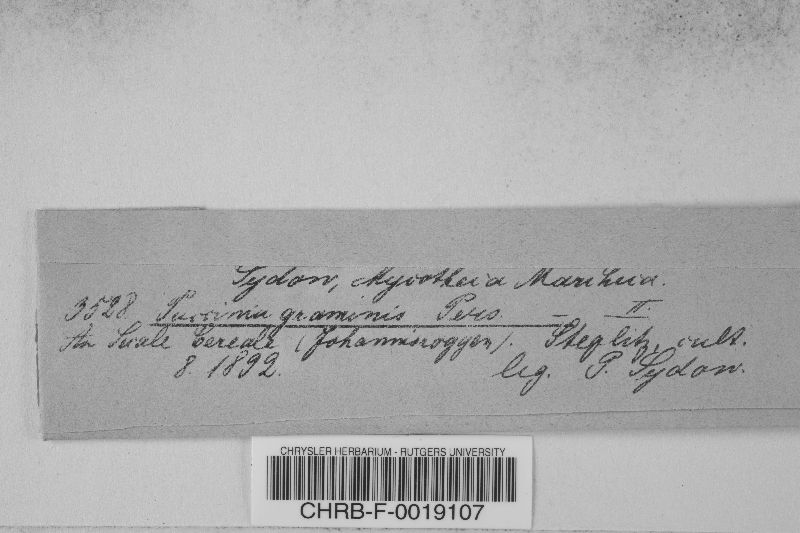 Sydow, Mycotheca Marchica.
3528 Puccinia graminis Pers. — II.
An Secale Cereale (Johannisroggen). Steglitz, cult.
8. 1892. leg. P. Sydow.
CHRYSLER HERBARIUM - RUTGERS UNIVERSITY
CHRB-F-0019107